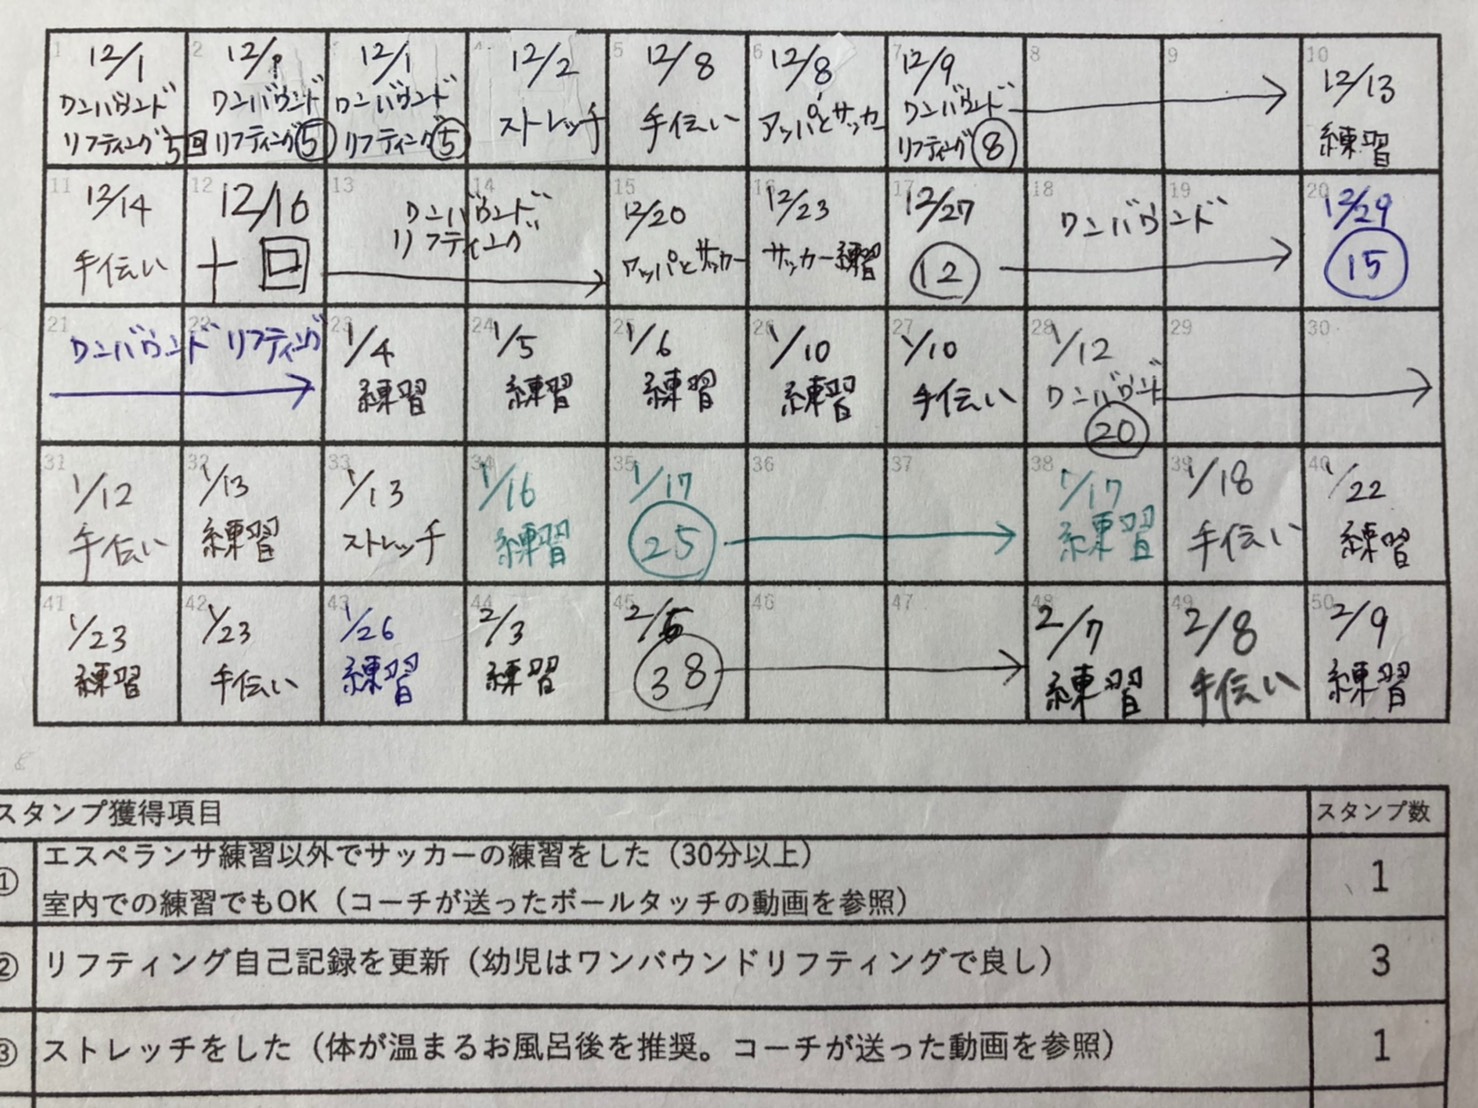 1 12/1 ワンバウンド リフティング5回
2 12/1 ワンバウンド リフティング⑤
3 12/1 ワンバウンド リフティング⑤
4 12/2 ストレッチ
5 12/8 手伝い
6 12/8 アッパとサッカー
7 12/9 ワンバウンド リフティング⑧
8
9
10 12/13 練習
11 12/14 手伝い
12 12/16 十回
13 14 ワンバウンド リフティング
15 12/20 アッパとサッカー
16 12/23 サッカー練習
17 12/27 12
18 19 ワンバウンド
20 12/29 15
21 22 ワンバウンドリフティング
23 1/4 練習
24 1/5 練習
25 1/6 練習
26 1/10 練習
27 1/10 手伝い
28 1/12 ワンバウンド 20
29
30
31 1/12 手伝い
32 1/13 練習
33 1/13 ストレッチ
34 1/16 練習
35 1/17 25
36
37
38 1/17 練習
39 1/18 手伝い
40 1/22 練習
41 1/23 練習
42 1/23 手伝い
43 1/26 練習
44 2/3 練習
45 2/5 38
46
47
48 2/7 練習
49 2/8 手伝い
50 2/9 練習
スタンプ獲得項目 スタンプ数
① エスペランサ練習以外でサッカーの練習をした（30分以上） 1
室内での練習でもOK（コーチが送ったボールタッチの動画を参照）
② リフティング自己記録を更新（幼児はワンバウンドリフティングで良し） 3
③ ストレッチをした（体が温まるお風呂後を推奨。コーチが送った動画を参照） 1